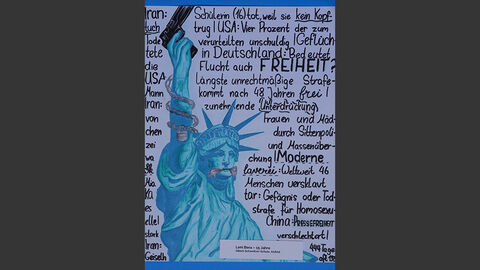 Iran: Schülerin (16) tot, weil sie kein Kopf-
tuch trug | USA: Vier Prozent der zum
Tode verurteilten unschuldig | Geflüch-
tete in Deutschland: Bedeutet
die Flucht auch FREIHEIT?
USA längste unrechtmäßige Strafe
Mann kommt nach 48 Jahren frei |
Iran: zunehmende Unterdrückung
von Frauen und Mäd-
chen durch Sittenpoli-
zei und Massenüber-
wa chung | Moderne
laverei: Weltweit 46
Mio. Menschen versklavt
Ka tar: Gefängnis oder Tod
es strafe für Homosexu-
elle! China: PRESSEFREIHEIT
stark verschlechtert!
Iran: 444 Tage
Geiselh aft
Leni Bleia – 15 Jahre
Albert-Schweitzer-Schule, Alsfeld